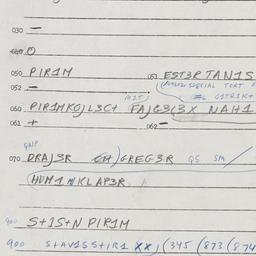 030 —
040 0
050 PIR1M 051 EST3R TAN1S
052 — SPECIAL TORT
060 PIR1MKOJL3C+ FAJG3(3X NAH1
061 + 062 —
070 DRAJ3R GREG3R QS SM /
HUM1NKLAP3R
900 S+1S+N PIR1M
900 S+AV1SS+IR1 XX) (345 (873 (874